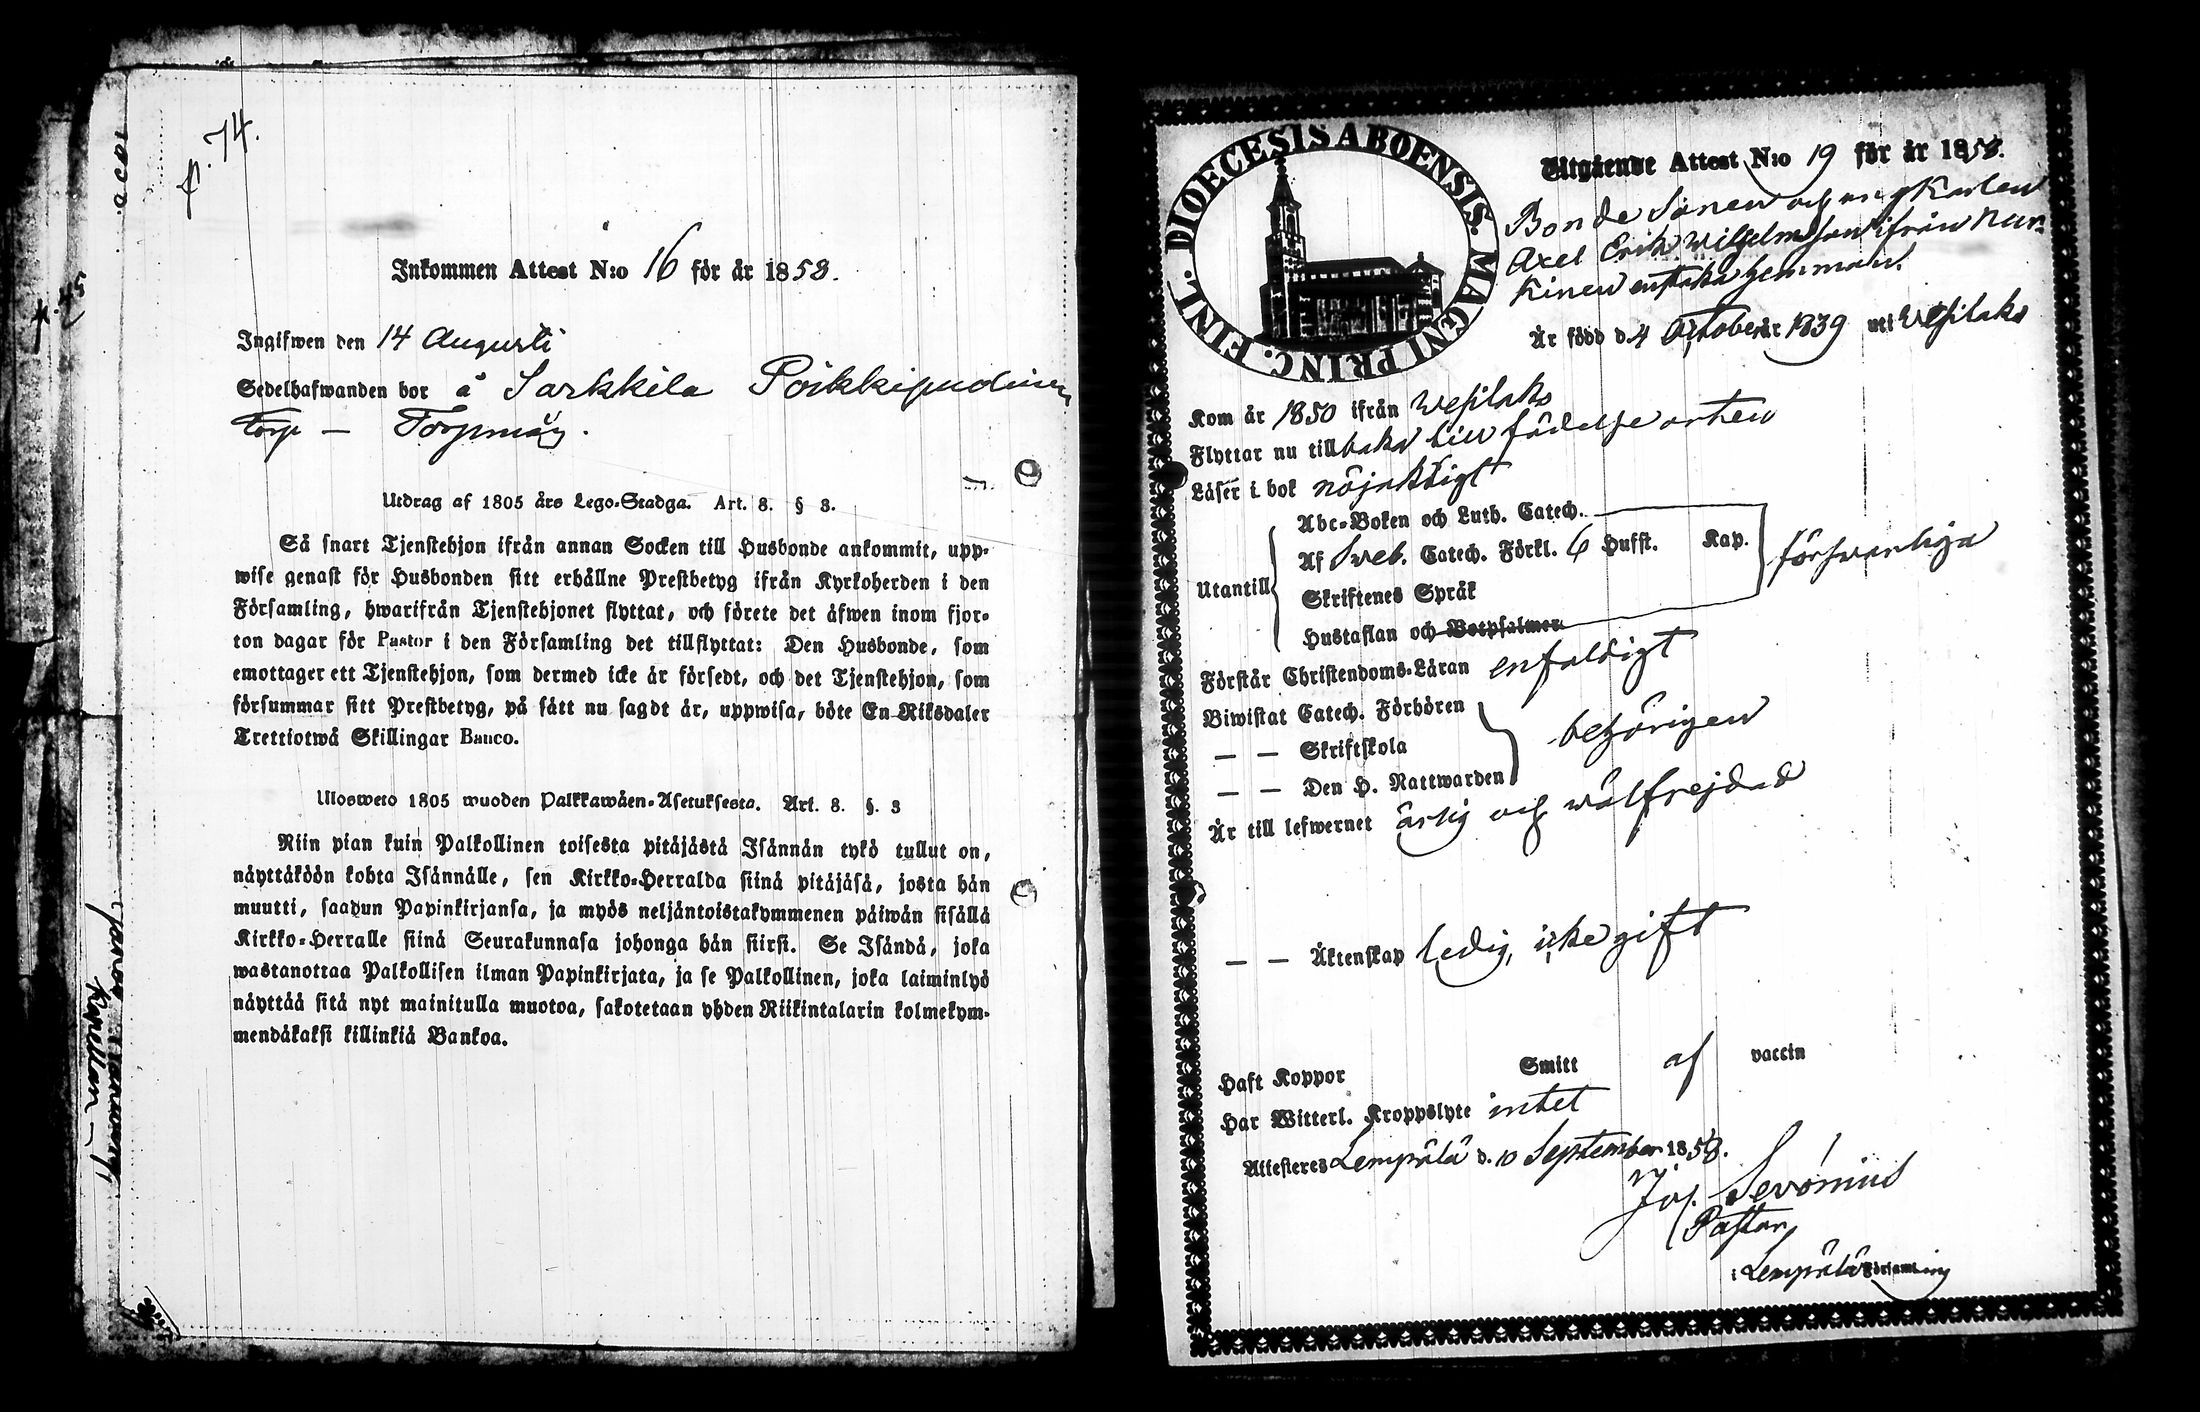 p. 74.
Inkommen Attest N:o 16 för år 1858.
Ingifwen den 14 Augusti
Sedelhafwanden bor å Sarkkila
Torp —
Utdrag af 1805 års Lego-Stadga. Art. 8. § 3.
Så snart Tjenstehjon ifrån annan Socken till Husbonde ankommit, upp-
wise genast för Husbonden sitt erhållne Prestbetyg ifrån Kyrkoherden i den
Församling, hwarifrån Tjenstehjonet flyttat, och förete det äfwen inom fjor-
ton dagar för Pastor i den Församling det tillflyttat: Den Husbonde, som
emottager ett Tjenstehjon, som dermed icke är försedt, och det Tjenstehjon, som
försummar sitt Prestbetyg, på sätt nu sagdt är, uppwisa, böte En Riksdaler
Trettiotwå Skillingar Banco.
Ulosweto 1805 wuoden Palkkawäen-Asetuksesta. Art. 8. §. 3
Niin pian kuin Palkollinen toisesta pitäjästä Isännän tykö tullut on,
näyttäköön kohta Isännälle, sen Kirkko-Herralda siinä pitäjäsä, josta hän
muutti, saadun Papinkirjansa, ja myös neljäntoistakymmenen päiwän sisällä
Kirkko-Herralle siinä Seurakunnasa johonga hän siirsi. Se Isändä, joka
wastanottaa Palkollisen ilman Papinkirjata, ja se Palkollinen, joka laiminlyö
näyttää sitä nyt mainitulla muotoa, sakotetaan yhden Riikintalarin kolmekym-
mendäkaksi killinkiä Bankoa.
DIOECESIS ABOENSIS. MAGNI PRINC. FINL.
Utgående Attest N:o 19 för år 1858.
Bonde Sonen och ung Karlen
Axel Erik Wilhelmsson ifrån Nur-
kinen enstaka hemman.
Är född d. 4 October år 1839 uti Wesilaks
Kom år 1850 ifrån Wesilaks
Flyttar nu tillbaka till födelse orten
Läser i bok nöjaktigt
Abc-Boken och Luth. Catech.
Af Sveb. Catech. Förkl. 6 Hufst. Kap.
Utantill
försvarliga
Skriftenes Språk
Hustaflan och Botpsalmer
Förstår Christendoms-Läran enfaldigt
Biwistat Catech. Förhören
— — Skriftskola
behörigen
— — Den H. Nattwarden
Är till lefwernet ärlig och wälfrejdad
— — Äktenskap ledig, icke gift
Haft Koppor Smitt af vaccin
Har Witterl. Kroppslyte intet
Attesteres Lempälä d. 10 September 1858.
Jos. Sevonius
Pastor
i Lempälä Församling